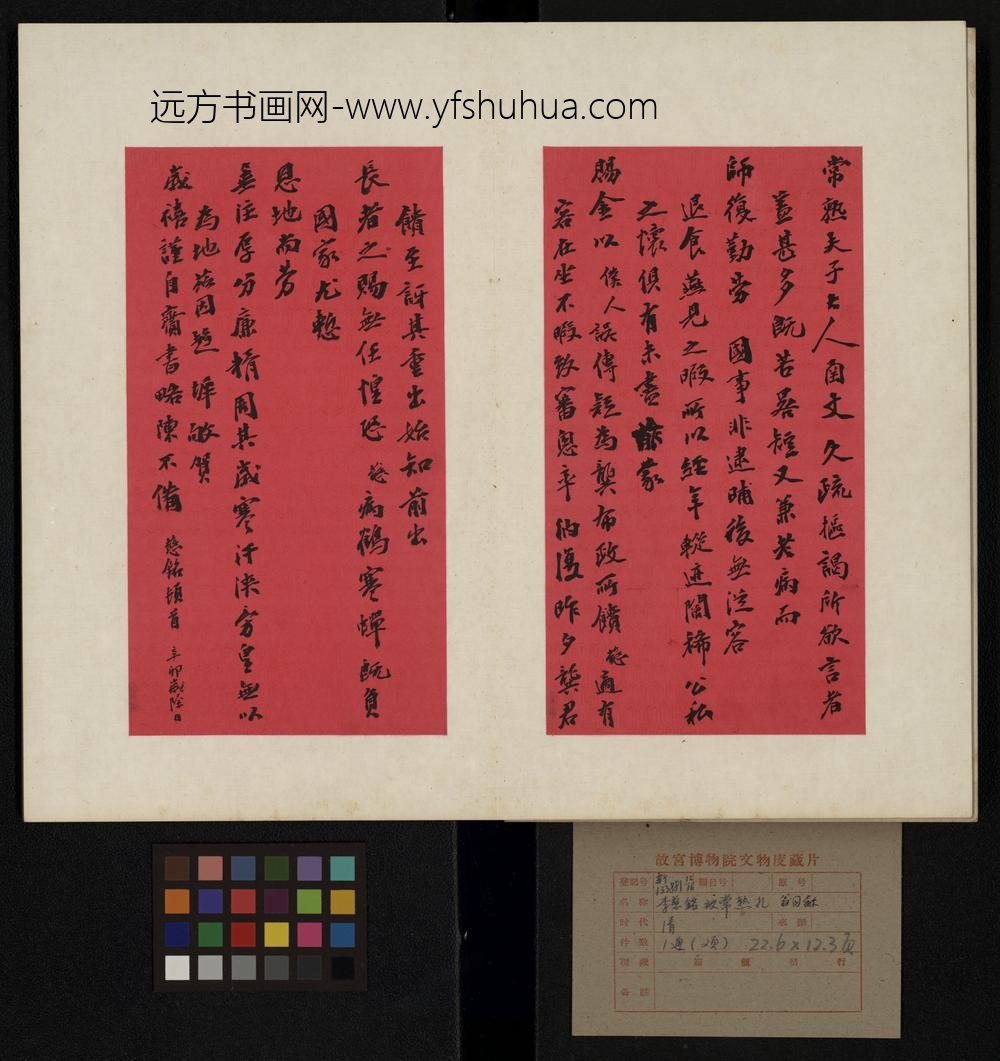 远方书画网-www.yfshuhua.com
常熟夫子大人函丈久疏摳謁所欲言者
蓋甚多既苦晷短又兼苦病而
師復勤劳國事非逮晡後無從容
退食燕見之暇所以經年蹤迹闊稀公私
之懷俱有未盡昨蒙
賜金以傒人誤傳疑為龔布政所饋慈適有
客在坐不暇致審悤卒納復昨夕龔君
饋至訝其重出始知前出
長者之賜無任惶恐慈病鶴寒蟬既負
國家尤慙
恩地而劳
垂注厚分廉精周其歲寒汗浹旁皇無以
為地茲因題墀敬賀
歲禧謹自齎書略陳不備
慈銘頓首
辛卯歲除日
故宮博物院文物庋藏片
登記号 新133891 12/16 類目号 原号
名称 李慈銘致常熟札 翁同龢
时代 清 來源
件数 1通(2頁) 22.6×12.3頁
現藏 箱 號 行
备註